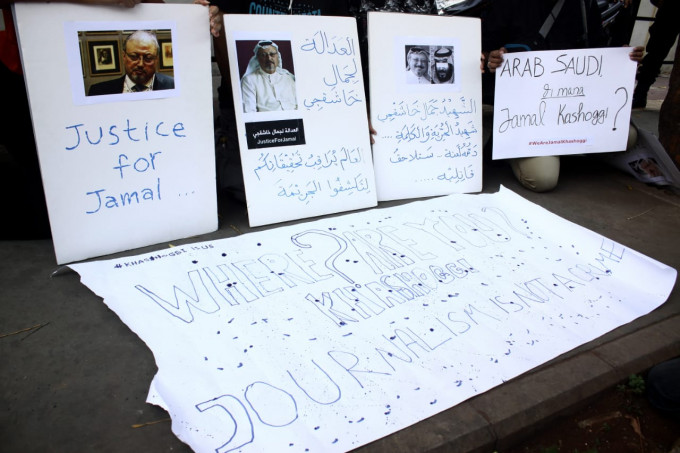 Justice
for
Jamal ...
العدالة
لجمال
خاشقجي
العدالة لجمال خاشقجي
JusticeForJamal
العالم يراقب تحقيقاتكم
الجريمة
الشهيد جمال خاشقجي
شهيد الحرية والكلمة ...
ستلاحق
قاتليه ...
ARAB SAUDI,
di mana
Jamal Kashoggi?
#WeAreJamalKhashoggi
#KHASHOGGI IS US
WHERE ARE YOU?
KHASHOGGI
JOURNALISM IS NOT A CRIME